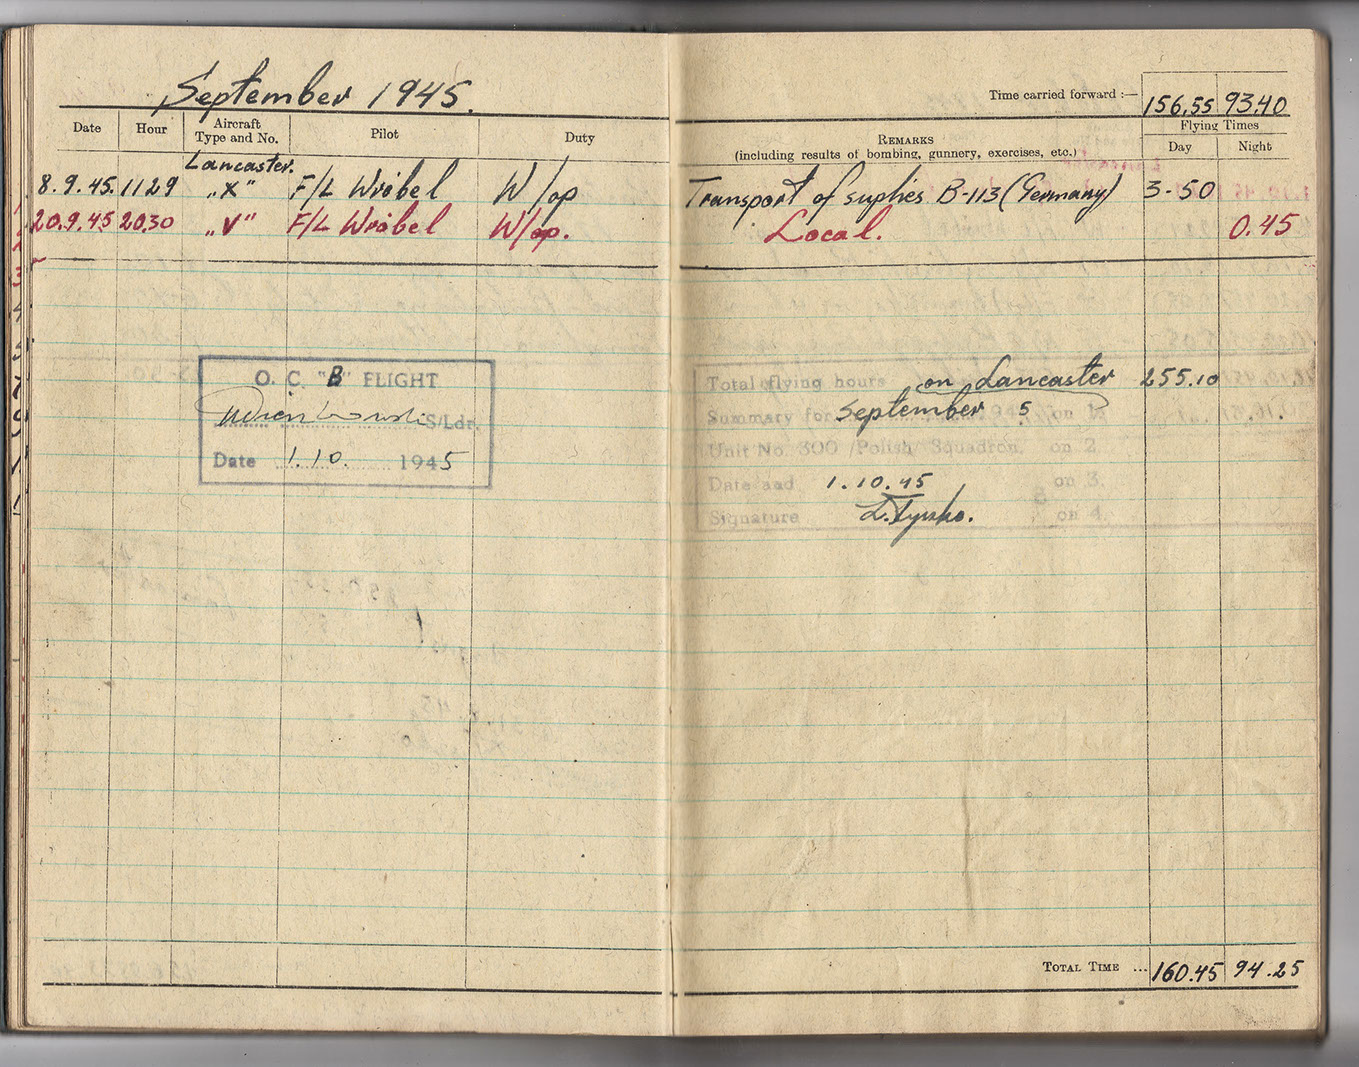 September 1945.
Date Hour Aircraft Type and No. Pilot Duty
Lancaster.
8.9.45. 1129 „X" F/L Wróbel W/op
20.9.45 20,30 „V" F/L Wróbel W/op.
O. C. "B" FLIGHT
S/Ldr.
Date 1.10. 1945
Time carried forward :— 156.55 93.40
Flying Times
REMARKS
(including results of bombing, gunnery, exercises, etc.) Day Night
Transport of suplies B-113 (Germany) 3-50
Local. 0.45
Total flying hours on Lancaster 255.10
Summary for September 1945 on 1.
Unit No. 300 /Polish/ Squadron. on 2.
Date and 1.10.45 on 3.
Signature on 4.
TOTAL TIME ... 160.45 94.25